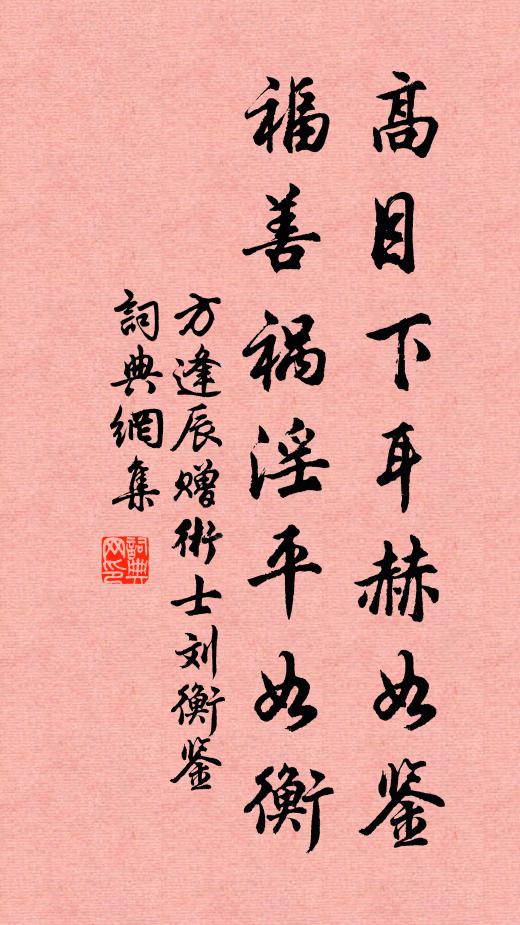 高目下耳赫如鉴
福善祸淫平如衡
方逢辰赠術士刘衡鉴
詞典網集
詞典网印